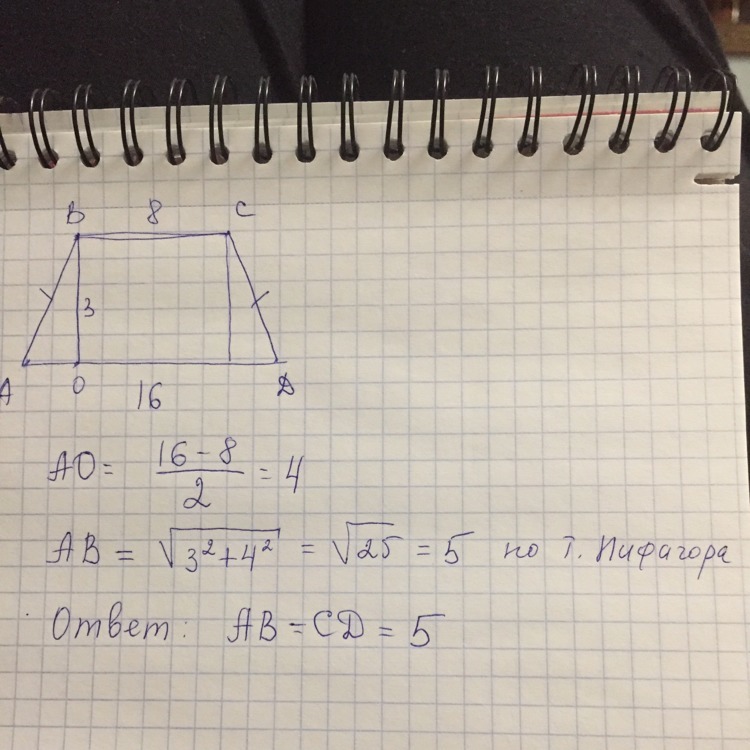 B 8 C
3
A O 16 D
AO = \frac{16-8}{2} = 4
AB = \sqrt{3^2+4^2} = \sqrt{25} = 5 по т. Пифагора
Ответ: AB = CD = 5